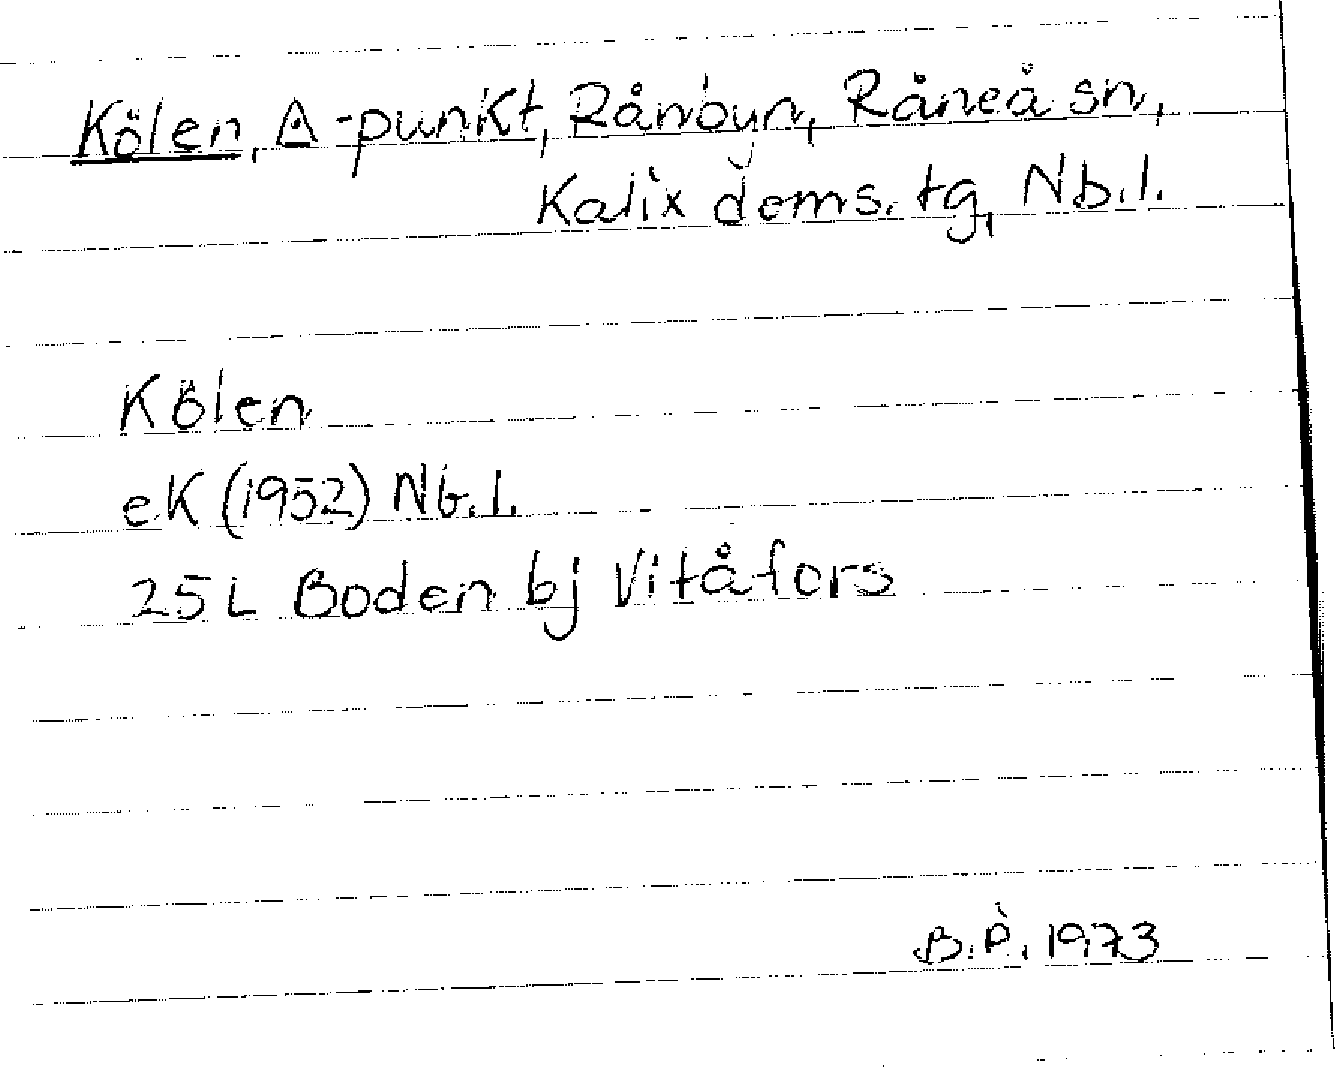 Kölen, △-punkt, Rånbyn, Råneå sn,
Kalix doms. tg, Nb.l.
Kölen
eK (1952) Nb.l.
25 L Boden bj Vitåfors
B.Å. 1973